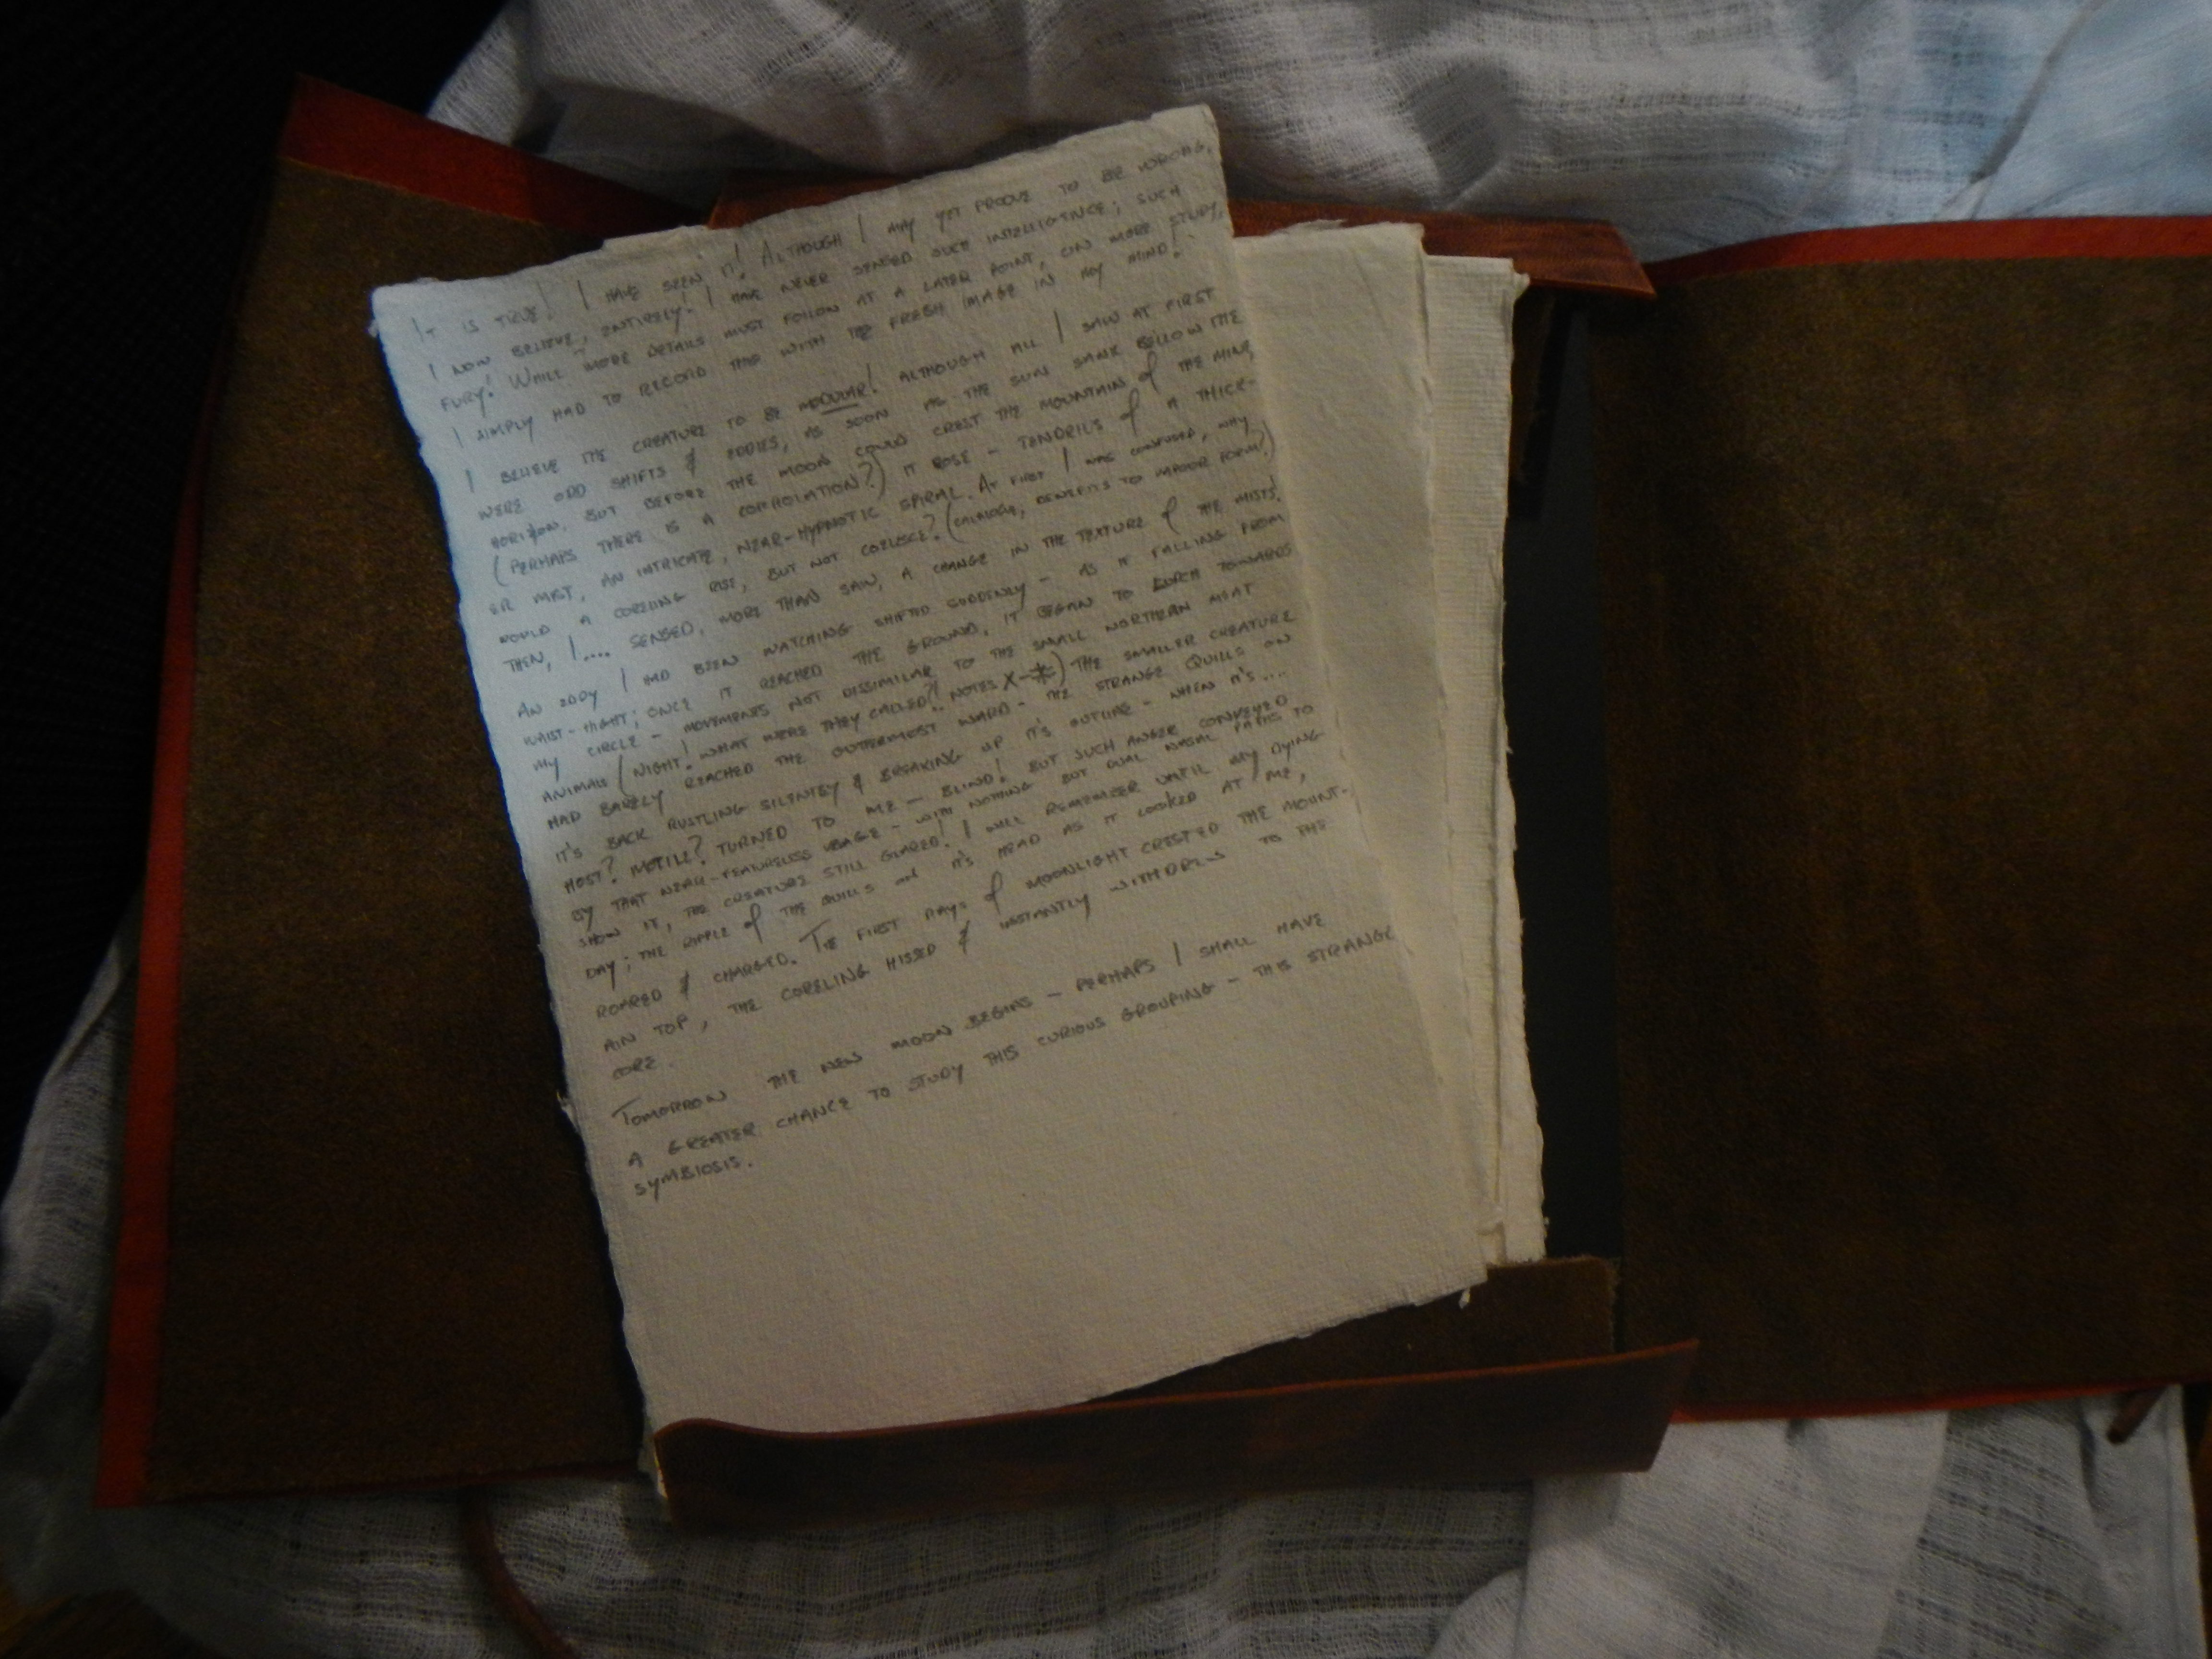 IT IS TRUE! I HAVE SEEN IT! ALTHOUGH I MAY YET PROOVE TO BE WRONG,
I NOW BELIEVE, ENTIRELY! I HAVE NEVER SENSED SUCH INTELLIGENCE; SUCH
FURY! WHILE MORE DETAILS MUST FOLLOW AT A LATER POINT, ON MORE STUDY,
I SIMPLY HAD TO RECORD THIS WITH THE FRESH IMAGE IN MY MIND!
I BELIEVE THE CREATURE TO BE MODULAR! ALTHOUGH ALL I SAW AT FIRST
WERE ODD SHIFTS & EDDIES, AS SOON AS THE SUN SANK BELLOW THE
HORIZON, BUT BEFORE THE MOON COULD CREST THE MOUNTAIN OF THE MIND,
(PERHAPS THERE IS A CORROLATION?) IT ROSE - TENDRILS OF A THICK-
ER MIST, AN INTRICATE, NEAR-HYPNOTIC SPIRAL. AT FIRST I WAS CONFUSED, WHY
WOULD A CORELING RISE, BUT NOT COELESCE? (BENEFITS TO VAPOUR FORM?)
THEN, I.... SENSED, MORE THAN SAW, A CHANGE IN THE TEXTURE OF THE MISTS!
AN EDDY I HAD BEEN WATCHING SHIFTED SUDDENLY - AS IF FALLING FROM
WAIST-HIGHT; ONCE IT REACHED THE GROUND, IT BEGAN TO LURCH TOWARDS
MY CIRCLE - MOVEMENTS NOT DISSIMILAR TO THE SMALL NORTHERN MEAT
ANIMALS (NIGHT! WHAT WERE THEY CALLED?! NOTES X-*) THE SMALLER CREATURE
HAD BARELY REACHED THE OUTTERMOST WARD - THE STRANGE QUILLS ON
IT'S BACK RUSTLING SILENTLY & BREAKING UP IT'S OUTLINE - WHEN IT'S....
HOST? MOTILE? TURNED TO ME - BLIND! BUT SUCH ANGER CONVEYED
BY THAT NEAR-FEATURELESS VISAGE - WITH NOTHING BUT DUAL NASAL PATHS TO
SHOW IT, THE CREATURE STILL GLARED! I WILL REMEMBER UNTIL MY DYING
DAY; THE RIPPLE OF THE QUILLS ON IT'S HEAD AS IT LOOKED AT ME,
ROARED & CHARGED. THE FIRST RAYS OF MOONLIGHT CRESTED THE MOUNT-
AIN TOP, THE CORELING HISSED & INSTANTLY WITHDREW TO THE
CORE.
TOMORROW THE NEW MOON BEGINS - PERHAPS I SHALL HAVE
A GREATER CHANCE TO STUDY THIS CURIOUS GROUPING - THIS STRANGE
SYMBIOSIS.